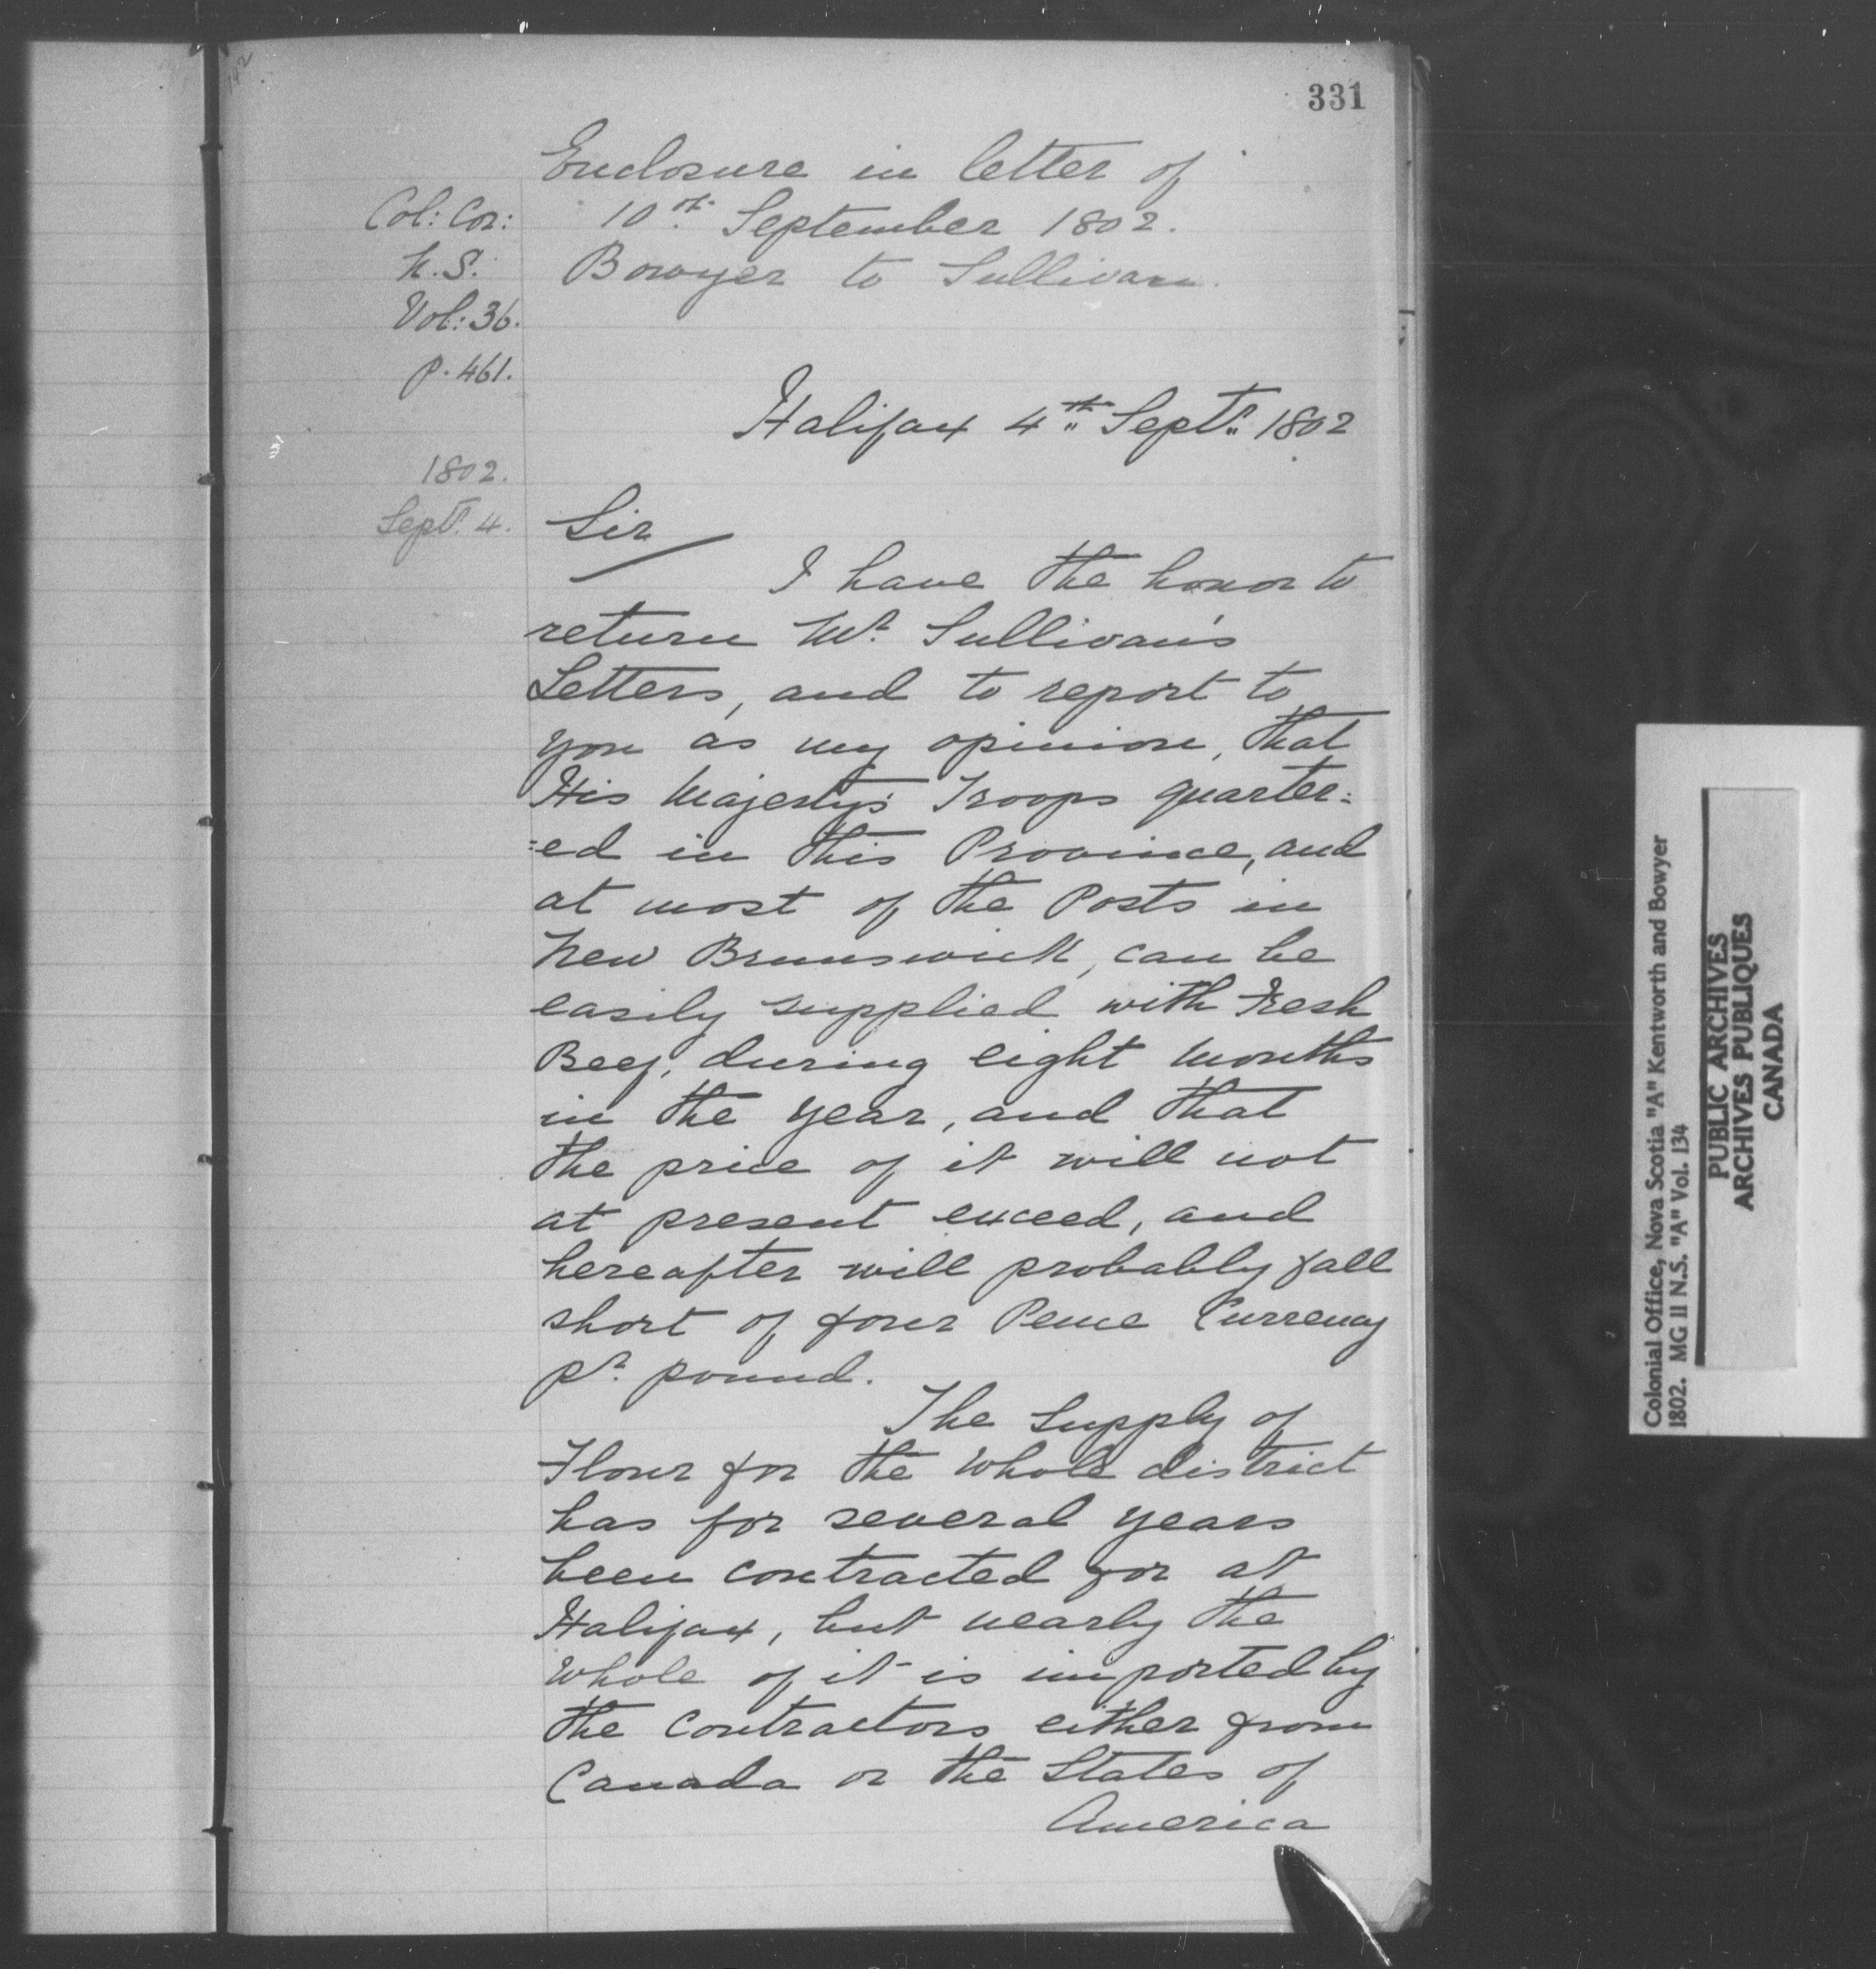 331
Enclosure in letter of
10th September 1802.
Bowyer to Sullivan.
Col: Cor:
N.S.
Vol: 36.
p. 461.
Halifax 4th Septr. 1802
1802.
Sept. 4.
Sir
I have the honor to
return Mr. Sullivan's
Letters, and to report to
you as my opinion, that
His Majesty's Troops quarter=
=ed in this Province, and
at most of the Posts in
New Brunswick, can be
easily supplied with Fresh
Beef, during eight Months
in the year, and that
the price of it will not
at present exceed, and
hereafter will probably fall
short of four Pence Currency
pr. pound.
The Supply of
Flour for the Whole district
has for several years
been contracted for at
Halifax, but nearly the
Whole of it is imported by
the Contractors either from
Canada or the States of
America
Colonial Office, Nova Scotia "A" Kentworth and Bowyer
1802. MG II N.S. "A" Vol. 134
PUBLIC ARCHIVES
ARCHIVES PUBLIQUES
CANADA